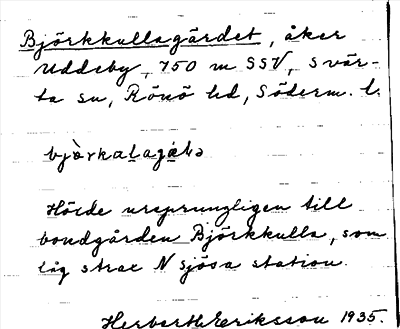 Björkkullagärdet, åker
Uddeby, 750 m SSV, Svär-
ta sn, Rönö hd, Söderm. l.
Hörde ursprungligen till
bondgården Björkkulla, som
låg strax N Sjösa station.
Herbert Eriksson 1935.